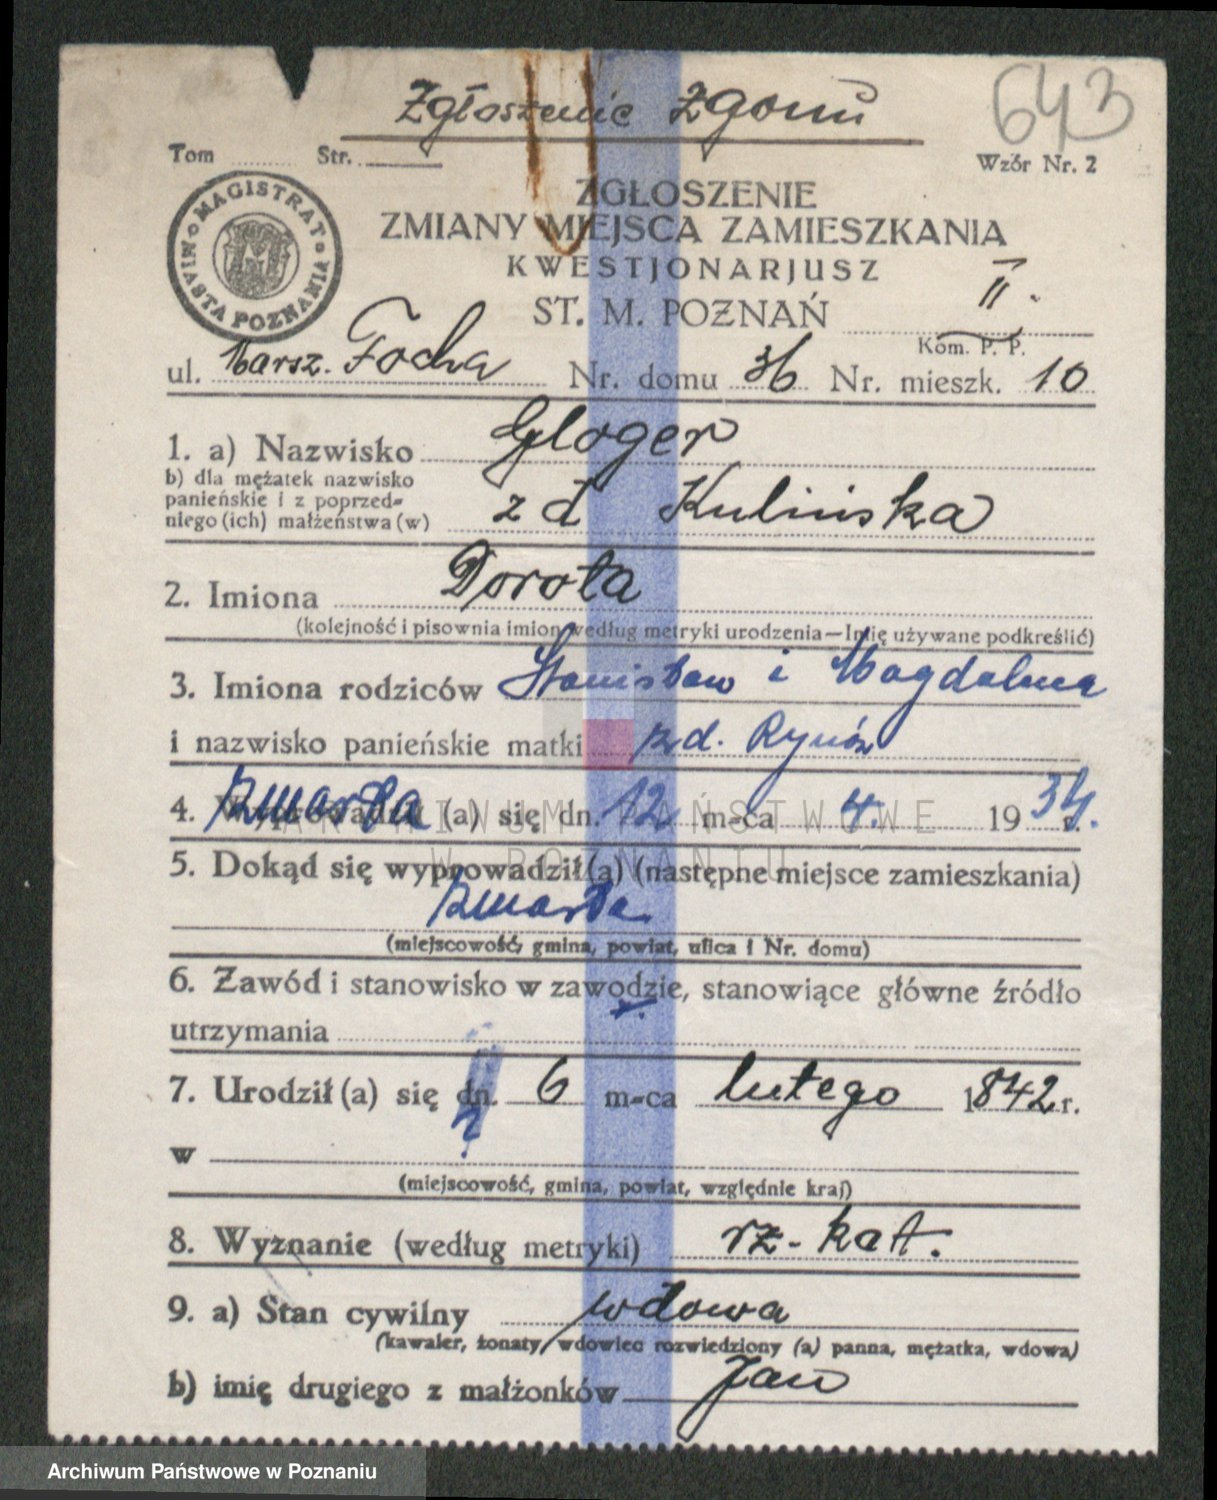 Zgłoszenie zgonu
643
Tom ........ Str. ........
Wzór Nr. 2
MAGISTRAT MIASTA POZNANIA
ZGŁOSZENIE
ZMIANY MIEJSCA ZAMIESZKANIA
KWESTJONARJUSZ
ST. M. POZNAŃ II.
Kom. P. P.
ul. Marsz. Focha Nr. domu 36 Nr. mieszk. 10
1. a) Nazwisko Gloger
b) dla mężatek nazwisko
panieńskie i z poprzed-
niego (ich) małżeństwa (w) z d Kulińska
2. Imiona Dorota
(kolejność i pisownia imion według metryki urodzenia—Imię używane podkreślić)
3. Imiona rodziców Stanisław i Magdalena
i nazwisko panieńskie matki zd. Rynów
4. Wyprowadził (a) się dn. 12 m-ca 4. 1934. r.
zmarła
ARCHIWUM PAŃSTWOWE
W POZNANIU
5. Dokąd się wyprowadził(a) (następne miejsce zamieszkania)
zmarła
(miejscowość, gmina, powiat, ulica i Nr. domu)
6. Zawód i stanowisko w zawodzie, stanowiące główne źródło
utrzymania
7. Urodził (a) się dn. 6 m-ca lutego 1842 r.
w
(miejscowość, gmina, powiat, względnie kraj)
8. Wyznanie (według metryki) rz-kat.
9. a) Stan cywilny wdowa
(kawaler, żonaty, wdowiec rozwiedziony (a) panna, mężatka, wdowa)
b) imię drugiego z małżonków Jan
Archiwum Państwowe w Poznaniu